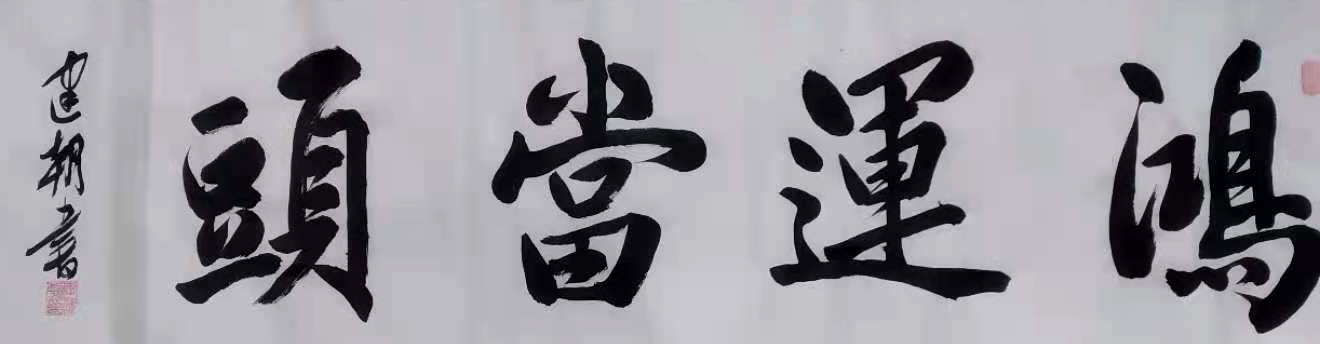 鴻運當頭
建朝書